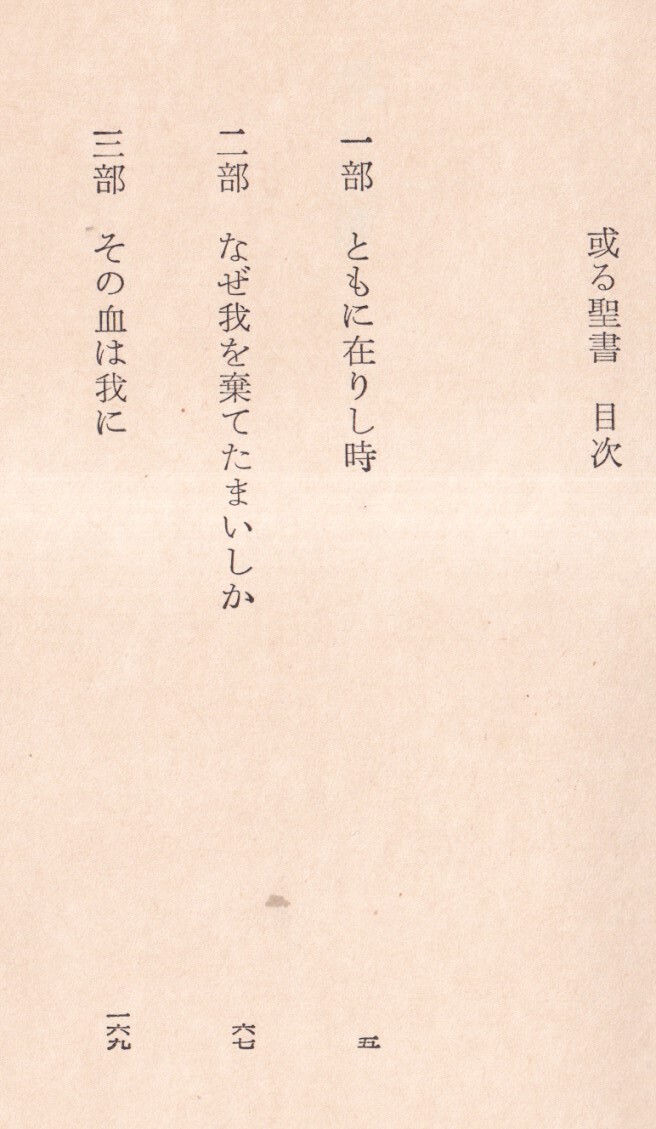 或る聖書　目次
一部　ともに在りし時　五
二部　なぜ我を棄てたまいしか　六七
三部　その血は我に　一六九